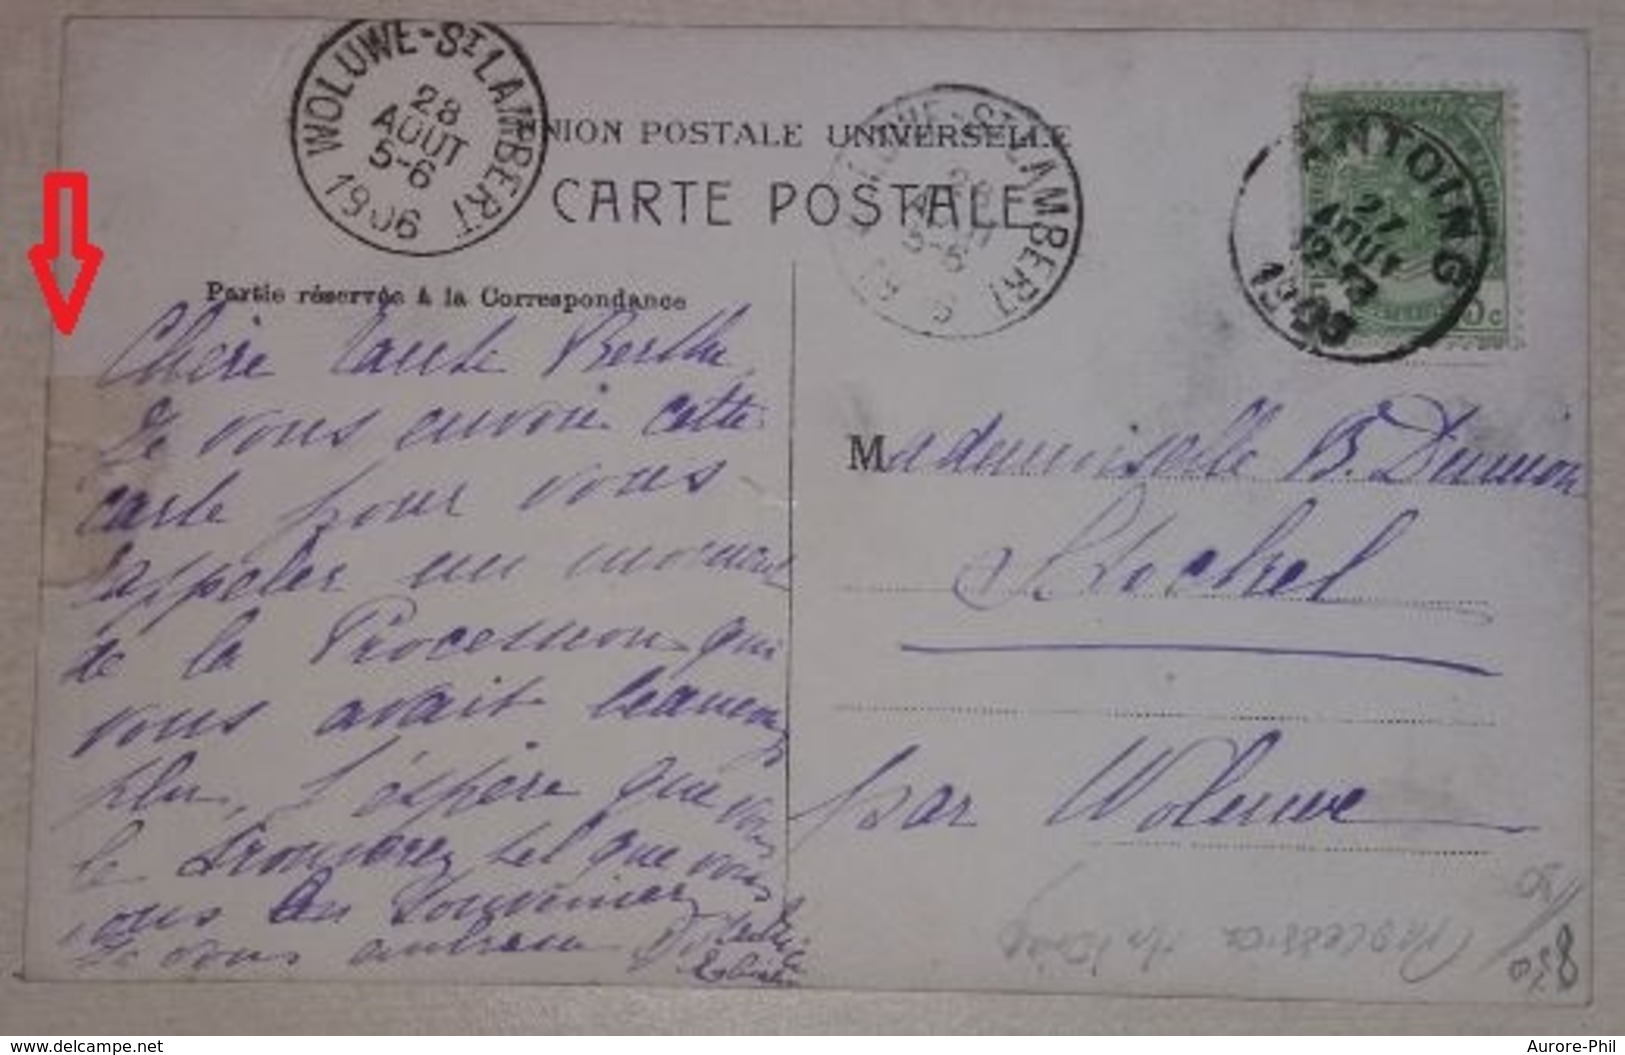 WOLUWE-ST LAMBERT
28
AOUT
5-6
1906
UNION POSTALE UNIVERSELLE
CARTE POSTALE
ANTOING
27
AOUT
Partie réservée à la Correspondance
Chère Tante Berthe
Je vous envoie cette
carte pour vous
rappeler un moment
de la Procession qui
vous avait beaucoup
plu, J'espère que vous
le trouverez tel que vous
vous en souveniez
Je vous embrasse
Mademoiselle B. Dumon
Stockel
par Woluwe
www.delcampe.net
Aurore-Phil